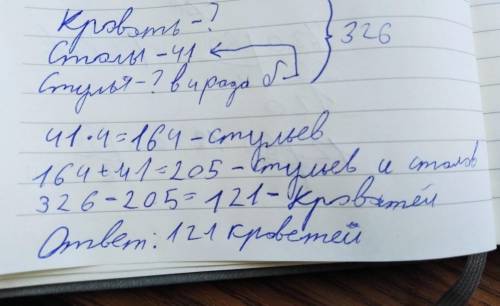 Кровать - ?
Столы - 41
Стулья - ? в 4 раза б
326
41·4=164-стульев
164+41=205-стульев и столов
326-205=121-кроватей
Ответ: 121 кроветей